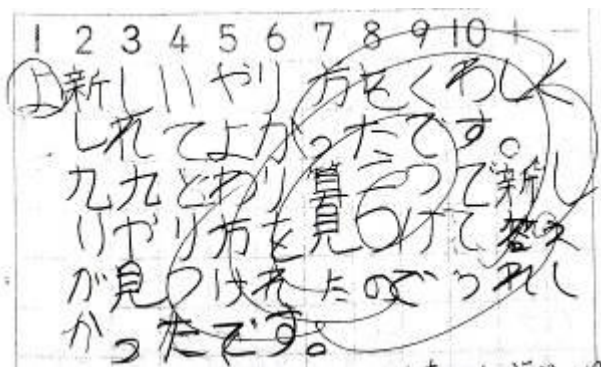 1 2 3 4 5 6 7 8 9 10 + 一
よ 新しいやり方をくわしく
しれてよかったです。
九九とわり算二つで新し
いやり方を見つけて答え
が見つけれたのでうれし
かったです。